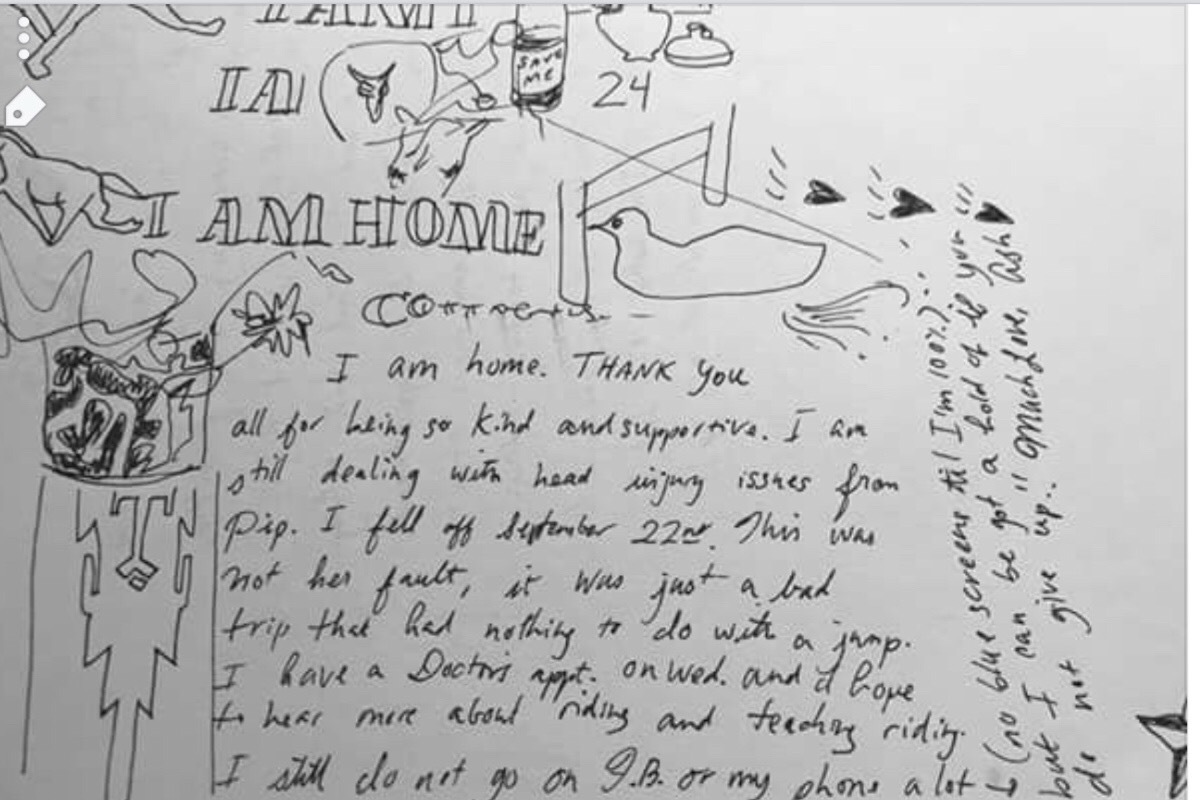 I AM
SAVE
ME
24
I AM HOME
I am home. THANK YOU
all for being so kind and supportive. I am
still dealing with head injury issues from
Pip. I fell off September 22nd. This was
not her fault, it was just a bad
trip that had nothing to do with a jump.
I have a Doctor's appt. on wed. and I hope
to hear more about riding and teaching riding.
I still do not go on F.B. or my phone a lot
(no blue screens til I'm 100%).
but I can be got a hold of if you
do not give up.. " Much Love, Ash